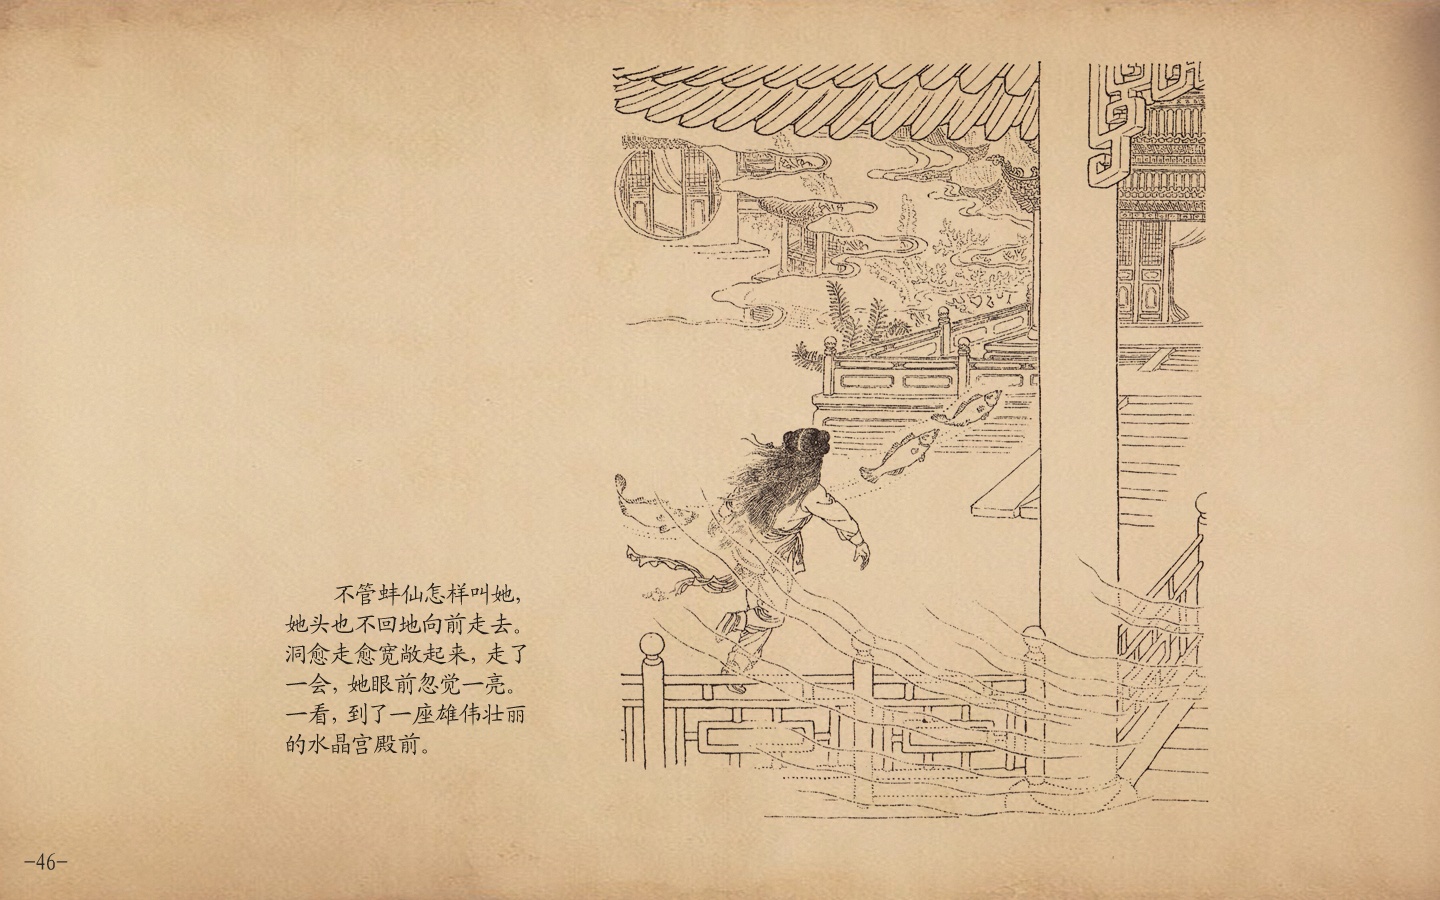 不管蚌仙怎样叫她，
她头也不回地向前走去。
洞愈走愈宽敞起来，走了
一会，她眼前忽觉一亮。
一看，到了一座雄伟壮丽
的水晶宫殿前。
-46-